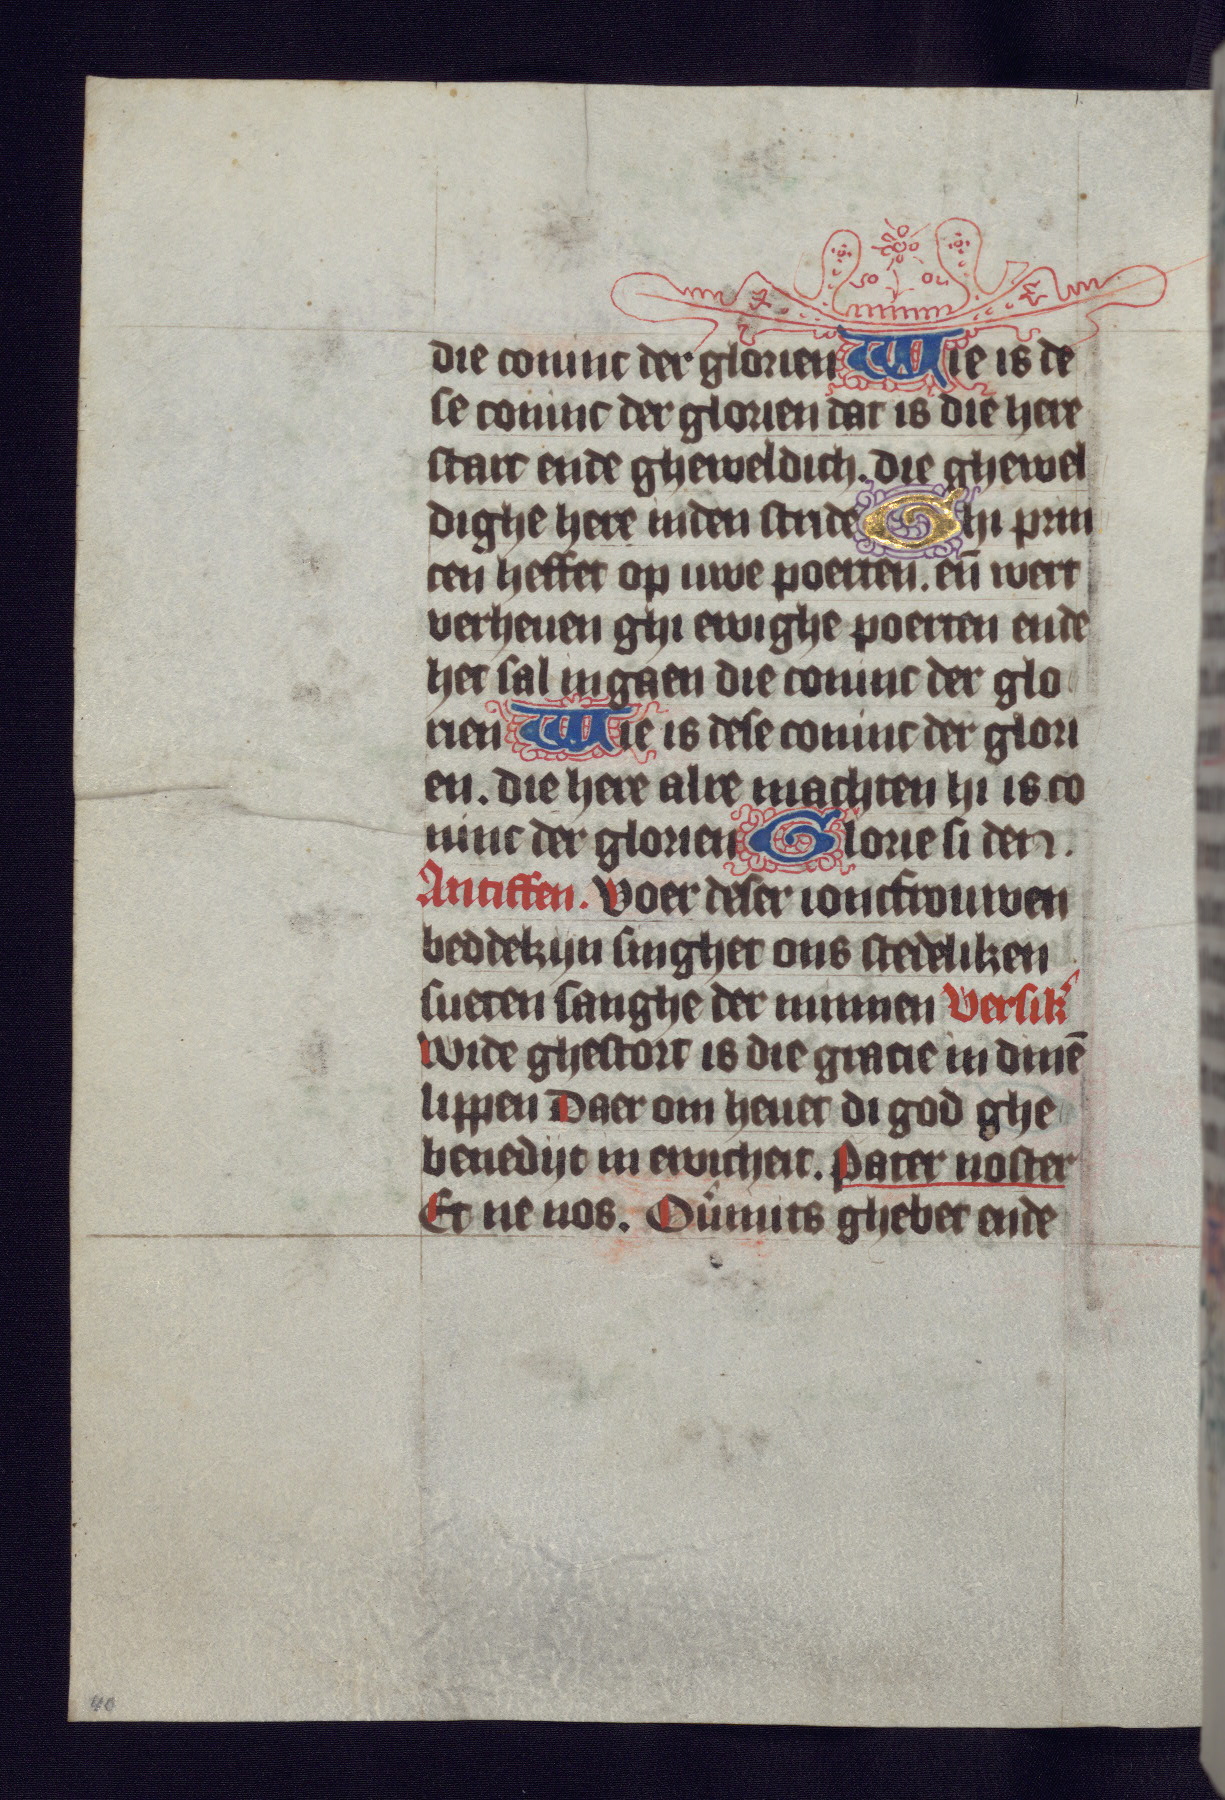 die coninc der glorien Wie is de
se coninc der glorien dat is die here
starc ende gheweldich. die ghewel
dighe here inden stride Ghi prin
cen heffet op uwe poerten. eñ wert
verheuen ghi ewighe poerten ende
het sal ingaen die coninc der glo
rien Wie is dese coninc der glori
en. die here alre machten hi is co
ninc der glorien Glorie si den.
Antiffen. Voer deser ioncfrouwen
beddekijn singhet ons stedeliken
sueten sanghe der minnen Versik'
Wide ghestort is die gracie in dinē
lippen Daer om heuet di god ghe
benedijt in ewicheit. Pater noster
Et ne nos. Oũmits ghebet ende
40